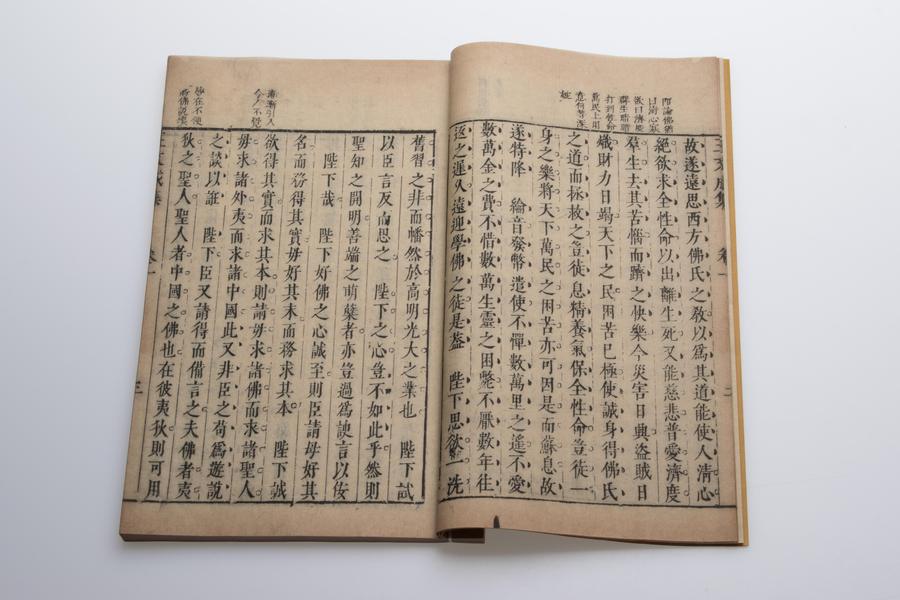 故遂遠思西方佛氏之教以爲其道能使人清心
絕欲求全性命以出離生死又能慈悲普愛濟度
群生去其苦惱而躋之快樂今災害日興盜賊日
熾財力日竭天下之民困苦已極使誠身得佛氏
之道而拯救之豈徒息精養氣保全性命豈徒一
身之樂將天下萬民之困苦亦可因是而蘇息故
遂特降 綸音發幣遣使不憚數萬里之遙不愛
數萬金之費不惜數萬生靈之困斃不厭數年往
返之遲久遠迎學佛之徒是蓋 陛下思欲一洗
漸漸引入
舊習之非而幡然於高明光大之業也 陛下試
以臣言反而思之 陛下之心豈不如此乎然則
聖知之開明善端之萌蘖者亦豈過爲諛言以佞
陛下哉 陛下好佛之心誠至則臣請毋好其
名而務得其實毋好其末而務求其本 陛下誠
欲得其實而求其本則請毋求諸佛而求諸聖人
毋求諸外夷而求諸中國此又非臣之苟爲遊說
之談以誑 陛下臣又請得而備言之夫佛者夷
狄之聖人聖人者中國之佛也在彼夷狄則可用